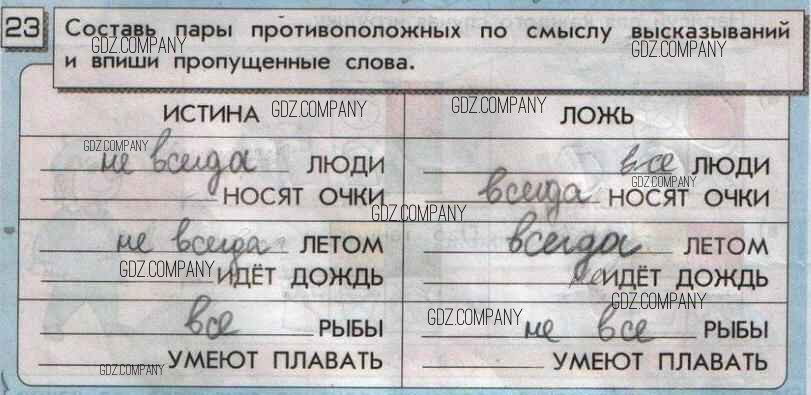 23 Составь пары противоположных по смыслу высказываний
GDZ.COMPANY GDZ.COMPANY
и впиши пропущенные слова.
ИСТИНА GDZ.COMPANY GDZ.COMPANY ЛОЖЬ
GDZ.COMPANY
не всегда ЛЮДИ все ЛЮДИ
GDZ.COMPANY
НОСЯТ ОЧКИ всегда НОСЯТ ОЧКИ
GDZ.COMPANY
не всегда ЛЕТОМ всегда ЛЕТОМ
GDZ.COMPANY ИДЁТ ДОЖДЬ ИДЁТ ДОЖДЬ
GDZ.COMPANY GDZ.COMPANY
все РЫБЫ не все РЫБЫ
УМЕЮТ ПЛАВАТЬ УМЕЮТ ПЛАВАТЬ
GDZ.COMPANY GDZ.COMPANY